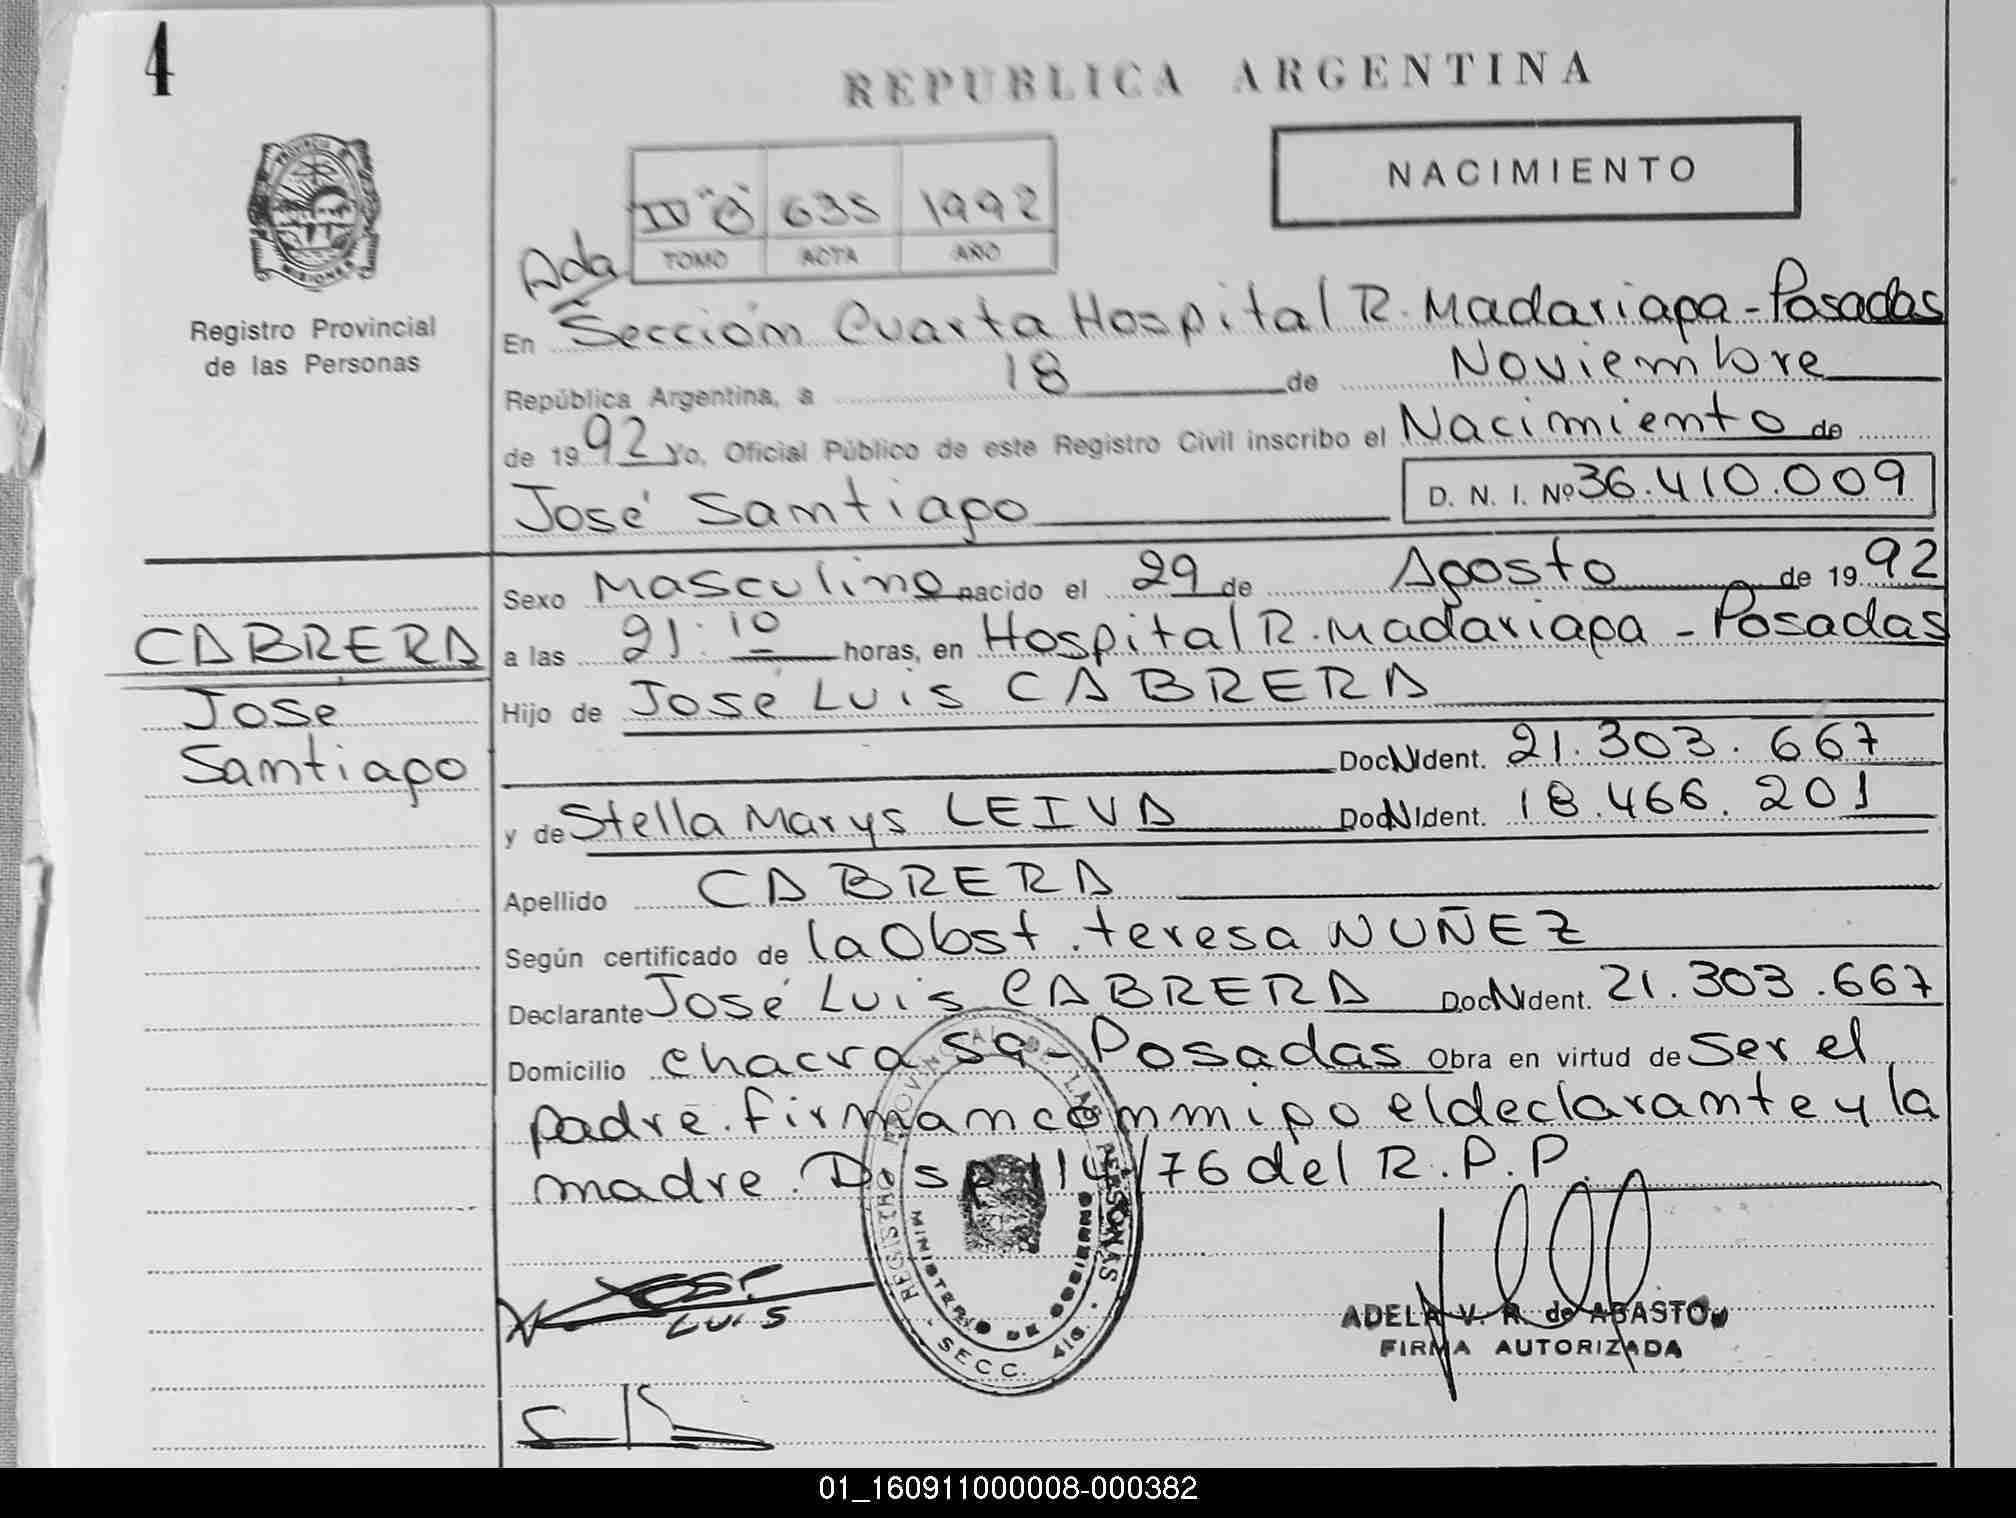 4
REPUBLICA ARGENTINA
NACIMIENTO
635 1992
TOMO ACTA AÑO
Ada
Registro Provincial
de las Personas
En Sección Cuarta Hospital R. Madariaga - Posadas
República Argentina, a 18 de Noviembre
de 1992 Yo, Oficial Público de este Registro Civil inscribo el Nacimiento de
José Santiago D. N. I. Nº 36.410.009
Sexo Masculino nacido el 29 de Agosto de 1992
CABRERA
Jose
Santiago
a las 21:10 horas, en Hospital R. Madariaga - Posadas
Hijo de José Luis CABRERA
Doc N Ident. 21.303.667
y de Stella Marys LEIVA Doc N Ident. 18.466.201
Apellido CABRERA
Según certificado de la Obst. teresa NUÑEZ
Declarante José Luis CABRERA Doc N Ident. 21.303.667
Domicilio chacra - Posadas Obra en virtud de Ser el
padre. firman conmigo el declarante y la
madre. Disp 114/76 del R.P.P.
REGISTRO PROVINCIAL DE LAS PERSONAS
MINISTERIO DE GOBIERNO
SECC. 4ta.
José
Luis
ADELA V. R. de ABASTO
FIRMA AUTORIZADA
01_160911000008-000382